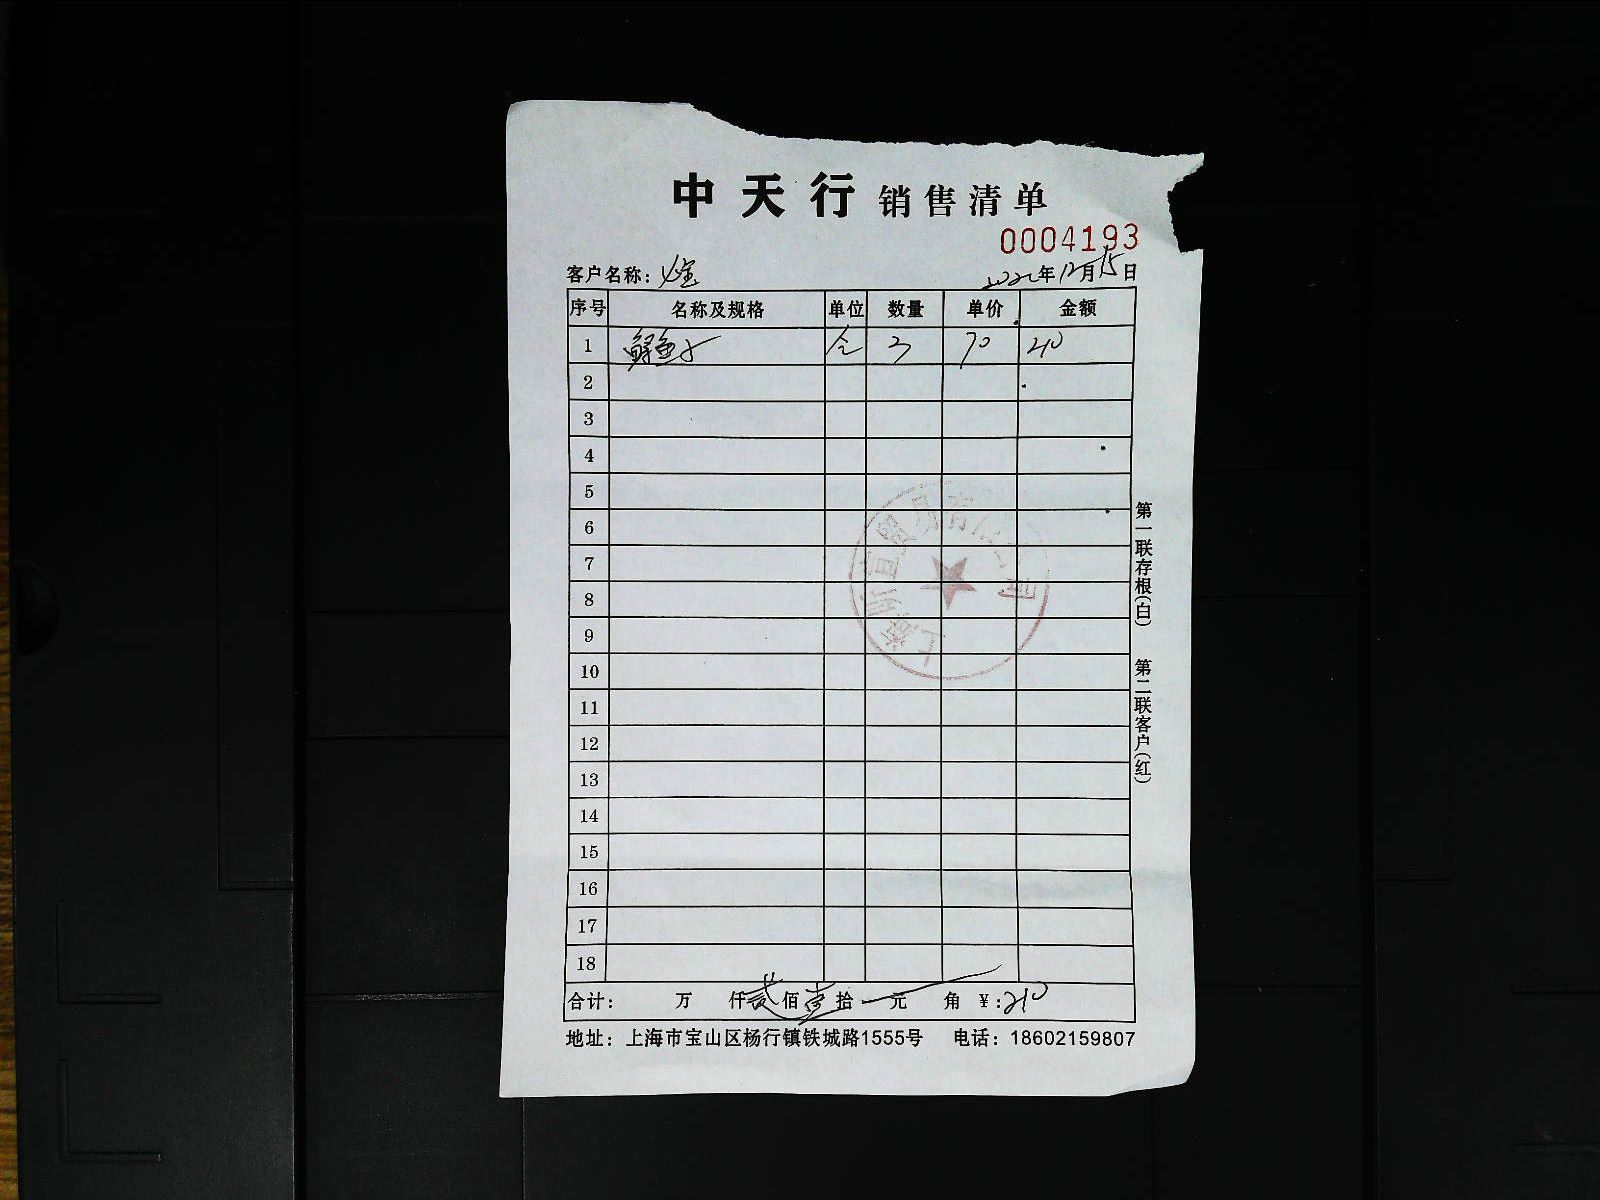 中天行 销售清单
0004193
客户名称: 2022年12月15日
序号 名称及规格 单位 数量 单价 金额
1 鲟鱼子 合 3 70 210
2
3
4
5
6
7
8
9
10
11
12
13
14
15
16
17
18
合计: 万 仟贰佰壹拾 元 角 ¥:210
地址: 上海市宝山区杨行镇铁城路1555号 电话: 18602159807
第一联存根(白) 第二联客户(红)
贸易有限公司